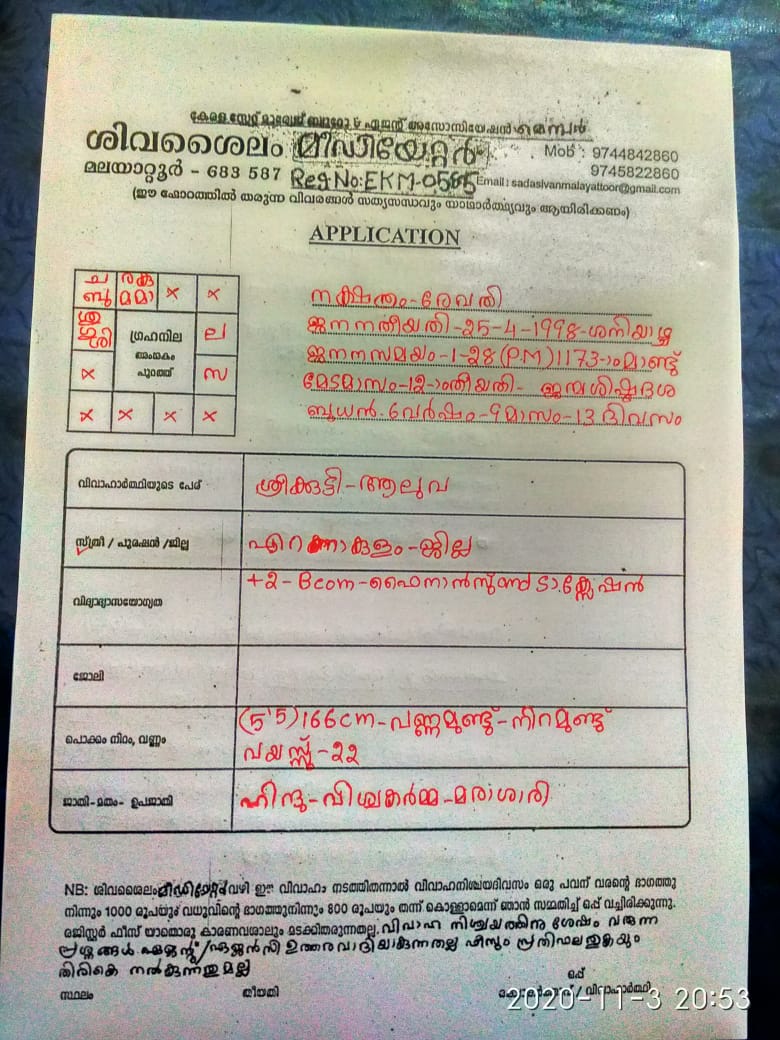 കേരള സ്റ്റേറ്റ് മാര്യേജ് ബ്യൂറോ & ഏജന്റ് അസോസിയേഷൻ മെമ്പർ
ശിവശൈലം മീഡിയേറ്റർ
Mob : 9744842860
മലയാറ്റൂർ - 683 587 Reg No: EKM-0565
9745822860
Email : sadasivanmalayattoor@gmail.com
(ഈ ഫോറത്തിൽ തരുന്ന വിവരങ്ങൾ സത്യസന്ധവും യാഥാർത്ഥ്യവും ആയിരിക്കണം)
APPLICATION
ച രകു × ×
ബു മമാ
ശു ഗ്രഹനില ല
ശരി
× പുറത്ത് സ
× × × ×
നക്ഷത്രം-രേവതി
ജനനതീയതി-25-4-1998-ശനിയാഴ്ച
ജനനസമയം-1-28(P.M) 1173-ാംമാണ്ട്
മേടമാസം-12-ാംതീയതി- ജന്മശിഷ്ടദശ
ബുധൻ. 6വേർഷം-9മാസം-13 ദിവസം
വിവാഹാർത്ഥിയുടെ പേര് ശ്രീക്കുട്ടി-ആലുവ
സ്ത്രീ / പുരുഷൻ /ജില്ല എറണാകുളം-ജില്ല
വിദ്യാഭ്യാസയോഗ്യത +2-Bcom-ഫൈനാൻസ്ആന്റ് ടാക്സേഷൻ
ജോലി
പൊക്കം നിറം, വണ്ണം (5'5)166cm-വണ്ണമുണ്ട്-നിറമുണ്ട്
വയസ്സ്-22
ജാതി-മതം- ഉപജാതി ഹിന്ദു-വിശ്വകർമ്മ-മരാശാരി
NB: ശിവശൈലം മീഡിയേറ്റർ വഴി ഈ വിവാഹം നടത്തിതന്നാൽ വിവാഹനിശ്ചയദിവസം ഒരു പവന് വരന്റെ ഭാഗത്തു
നിന്നും 1000 രൂപയും വധുവിന്റെ ഭാഗത്തുനിന്നും 800 രൂപയും തന്ന് കൊള്ളാമെന്ന് ഞാൻ സമ്മതിച്ച് ഒപ്പ് വച്ചിരിക്കുന്നു.
രജിസ്റ്റർ ഫീസ് യാതൊരു കാരണവശാലും മടക്കിതരുന്നതല്ല. വിവാഹ നിശ്ചയത്തിനു ശേഷം വരുന്ന
പ്രശ്നങ്ങൾ ഏജന്റ്/ഏജൻസി ഉത്തരവാദിയാകുന്നതല്ല ഫീസും പ്രതിഫലതുകയും
തിരികെ നൽകുന്നതുമല്ല
ഒപ്പ്
സ്ഥലം തീയതി രക്ഷകർത്താവ് / വിവാഹാർത്ഥി
2020-11-3 20:53